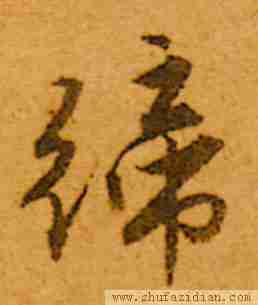 締
www.shufazidian.com